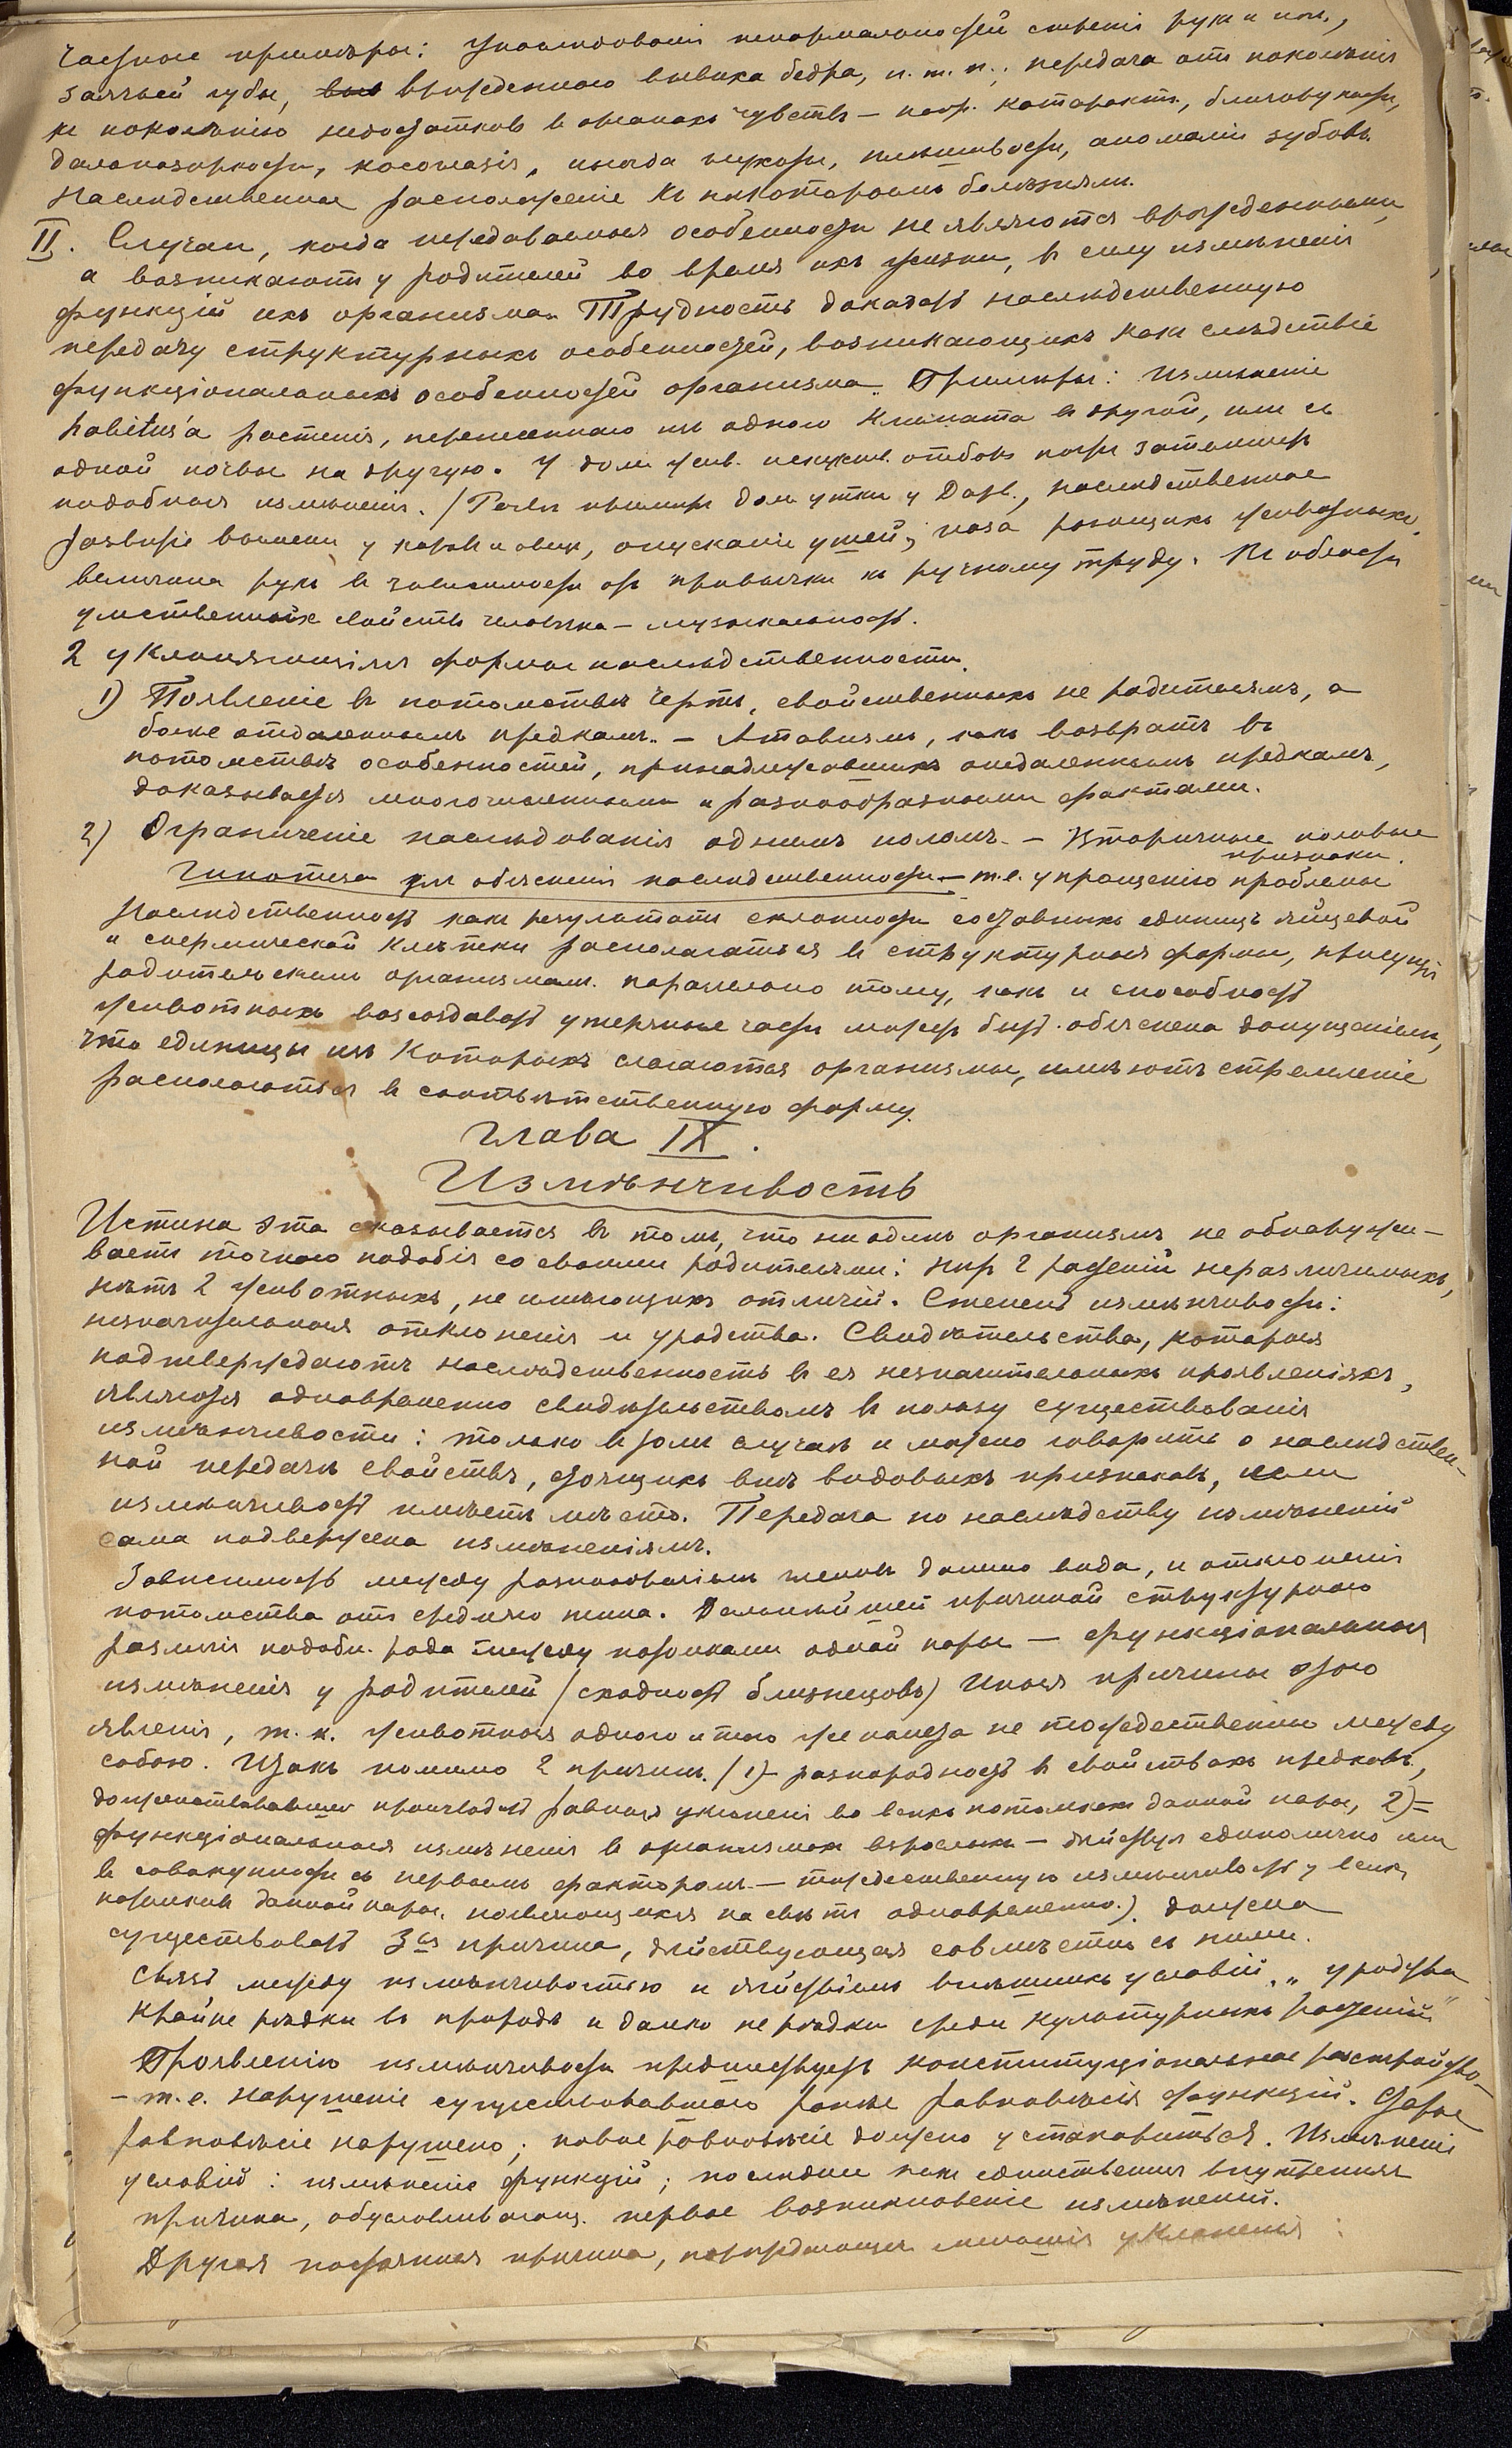 Частные примѣры: Унаслѣдованія ненормальностей строенія рукъ и ногъ,
заячьей губы, врожденнаго вывиха бедра, и. т. п.; передача отъ поколѣнія
къ поколѣнію недостатковъ въ органахъ чувствъ – напр. катаракты, близорукости,
дальнозоркости, косоглазія, иногда глухоты, плѣшивости, аномаліи зубовъ.
Наслѣдственное расположеніе къ нѣкоторымъ болѣзнямъ.
II. Случаи, когда передаваемыя особенности не являются врожденными,
а возникаютъ у родителей во время ихъ жизни, въ силу измѣненія
функцій ихъ организма. Трудность доказать наслѣдственную
передачу структурныхъ особенностей, возникающихъ какъ слѣдствіе
функціональныхъ особенностей организма. Примѣры: Измѣненіе
habitus'а растенія, перенесеннаго изъ одного климата въ другой, или съ
одной почвы на другую. У дом. жив. искусств. отборъ
подобныя измѣненія. / дом. утки у Дарв., наслѣдственное
развитіе вымени у коровъ и овецъ, опусканіе ушей;
величина рукъ въ зависимости отъ привычки къ ручному труду. Въ области
умственныхъ свойствъ человѣка – музыкальность.
2 уклоняющіяся формы наслѣдственности.
1) Появленіе въ потомствѣ чертъ, свойственныхъ не родителямъ, а
болѣе отдаленнымъ предкамъ. – Атавизмъ, какъ возвратъ въ
потомствѣ особенностей, принадлежавшихъ отдаленнымъ предкамъ,
доказывается многочисленными и разнообразными фактами.
2) Ограниченіе наслѣдованія однимъ поломъ. – Вторичные половые
признаки.
Гипотеза для объясненія наслѣдственности – т.е. упрощенію проблемы
Наслѣдственность какъ результатъ склонности составныхъ единицъ яйцевой
и спермической клѣтки располагаться въ структурныя формы, присущія
родительскимъ организмамъ. параллельно тому, какъ и способность
животныхъ возсоздавать утерянные части можетъ быть объяснена допущеніемъ,
что единицы изъ которыхъ слагаются организмы, имѣютъ стремленіе
располагаться въ соотвѣтственную форму.
Глава IX.
Измѣнчивость
Истина эта сказывается въ томъ, что ни одинъ организмъ не обнаружи-
ваетъ точнаго подобія со своими родителями: нѣтъ 2 растеній неразличимыхъ,
нѣтъ 2 животныхъ, не имѣющихъ отличій. Степень измѣнчивости:
незначительныя отклоненія и уродства. Свидѣтельства, которыя
подтверждаютъ наслѣдственность въ ея незначительныхъ проявленіяхъ,
являются одновременно свидѣтельствомъ въ пользу существованія
измѣнчивости: только въ томъ случаѣ и можно говорить о наслѣдствен-
ной передачѣ свойствъ, стоящихъ внѣ видовыхъ признаковъ, если
измѣнчивость имѣетъ мѣсто. Передача по наслѣдству измѣненій
сама подвержена измѣненіямъ.
Зависимость между разнообразіемъ членовъ даннаго вида, и отклоненія
потомства отъ средняго типа. Дальнѣйшей причиной структурнаго
различія подобн. рода между потомками одной пары – функціональныя
измѣненія у родителей / сходность близнецовъ) Иныя причины этого
явленія, т. к. животныя одного и того же помета не тождественны между
собою. Итакъ помимо 2 причинъ. / 1) – разнородность въ свойствахъ предковъ,
долженствовавшая производить равныя уклоненія во всѣхъ потомкахъ данной пары, 2) =
функціональныя измѣненія въ организмахъ взрослыхъ – дѣйствуя единолично или
въ совокупности съ первымъ факторомъ – тождественную измѣнчивость у всѣхъ
потомковъ данной пары, появляющихся на свѣтъ одновременно.) должна
существовать 3ья причина, дѣйствующая совмѣстно съ ними.
Связь между измѣнчивостью и дѣйствіемъ внѣшнихъ условій. „уродства
крайне рѣдки въ природѣ и далеко не рѣдки среди культурныхъ растеній"
Проявленію измѣнчивости предшествуетъ конституціональное разстройство –
– т.е. нарушеніе существовавшаго ранѣе равновѣсія функцій. Старое
равновѣсіе нарушено; новое равновѣсіе должно установиться. Измѣненіе
условій: измѣненіе функцій; послѣднее какъ единственная внутренняя
причина, обусловливающ. первое возникновеніе измѣненій.
Другая постоянная причина, порождающая уклоненія: